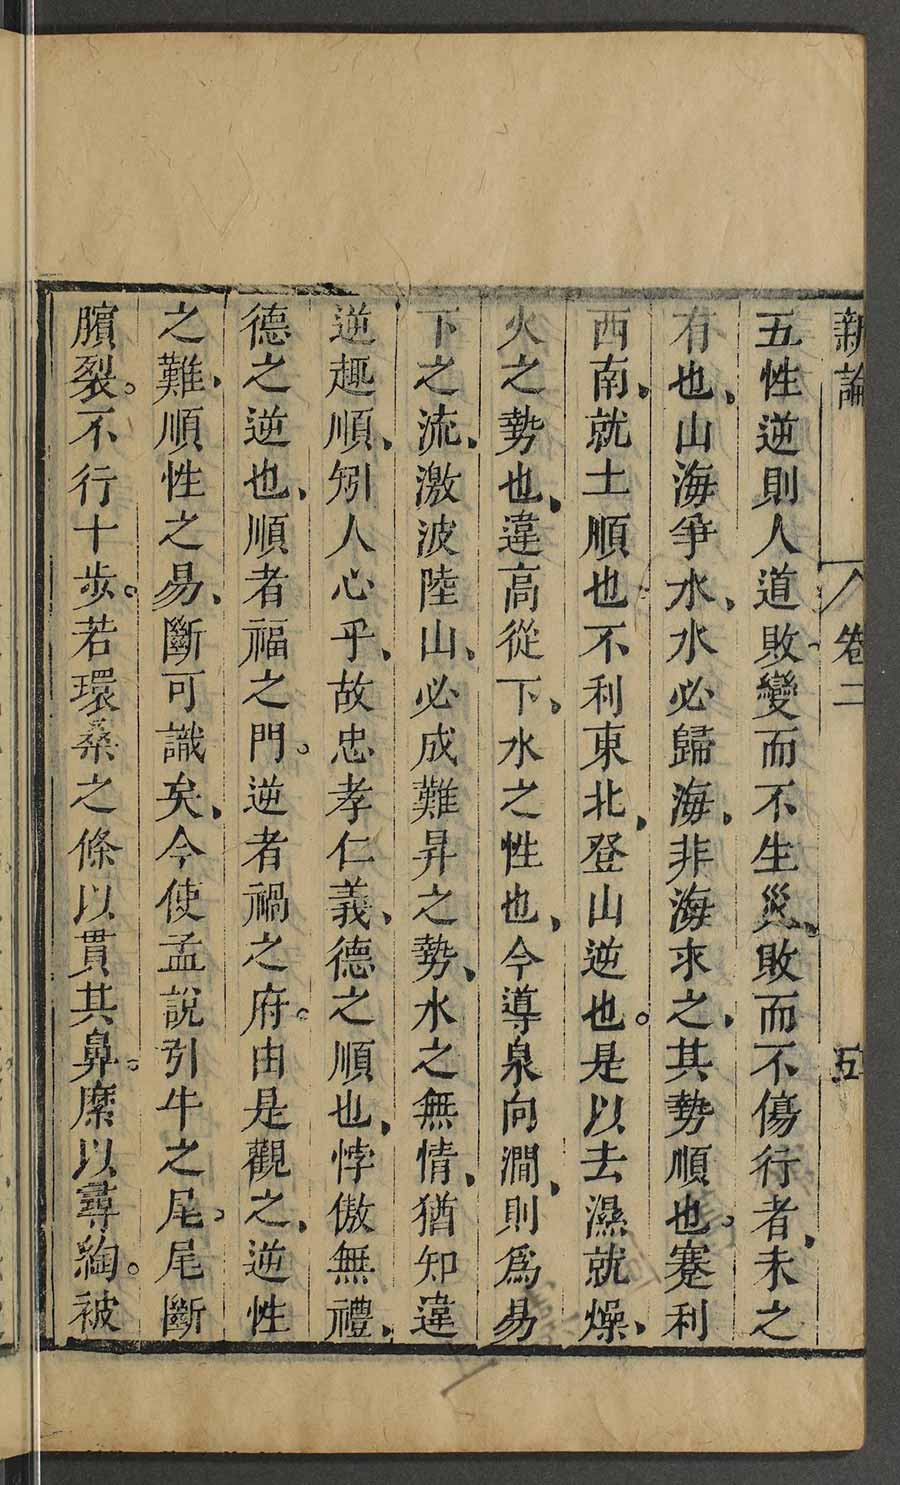 新論 卷二 五
五性逆則人道敗變而不生災、敗而不傷行者、未之
有也、山海爭水、水必歸海、非海求之、其勢順也。蹇利
西南、就土順也不利東北、登山逆也。是以去濕就燥、
火之勢也、違高從下、水之性也、今導泉向澗、則爲易
下之流、激波陸山、必成難昇之勢、水之無情、猶知違
逆趣順、矧人心乎、故忠孝仁義、德之順也、悖傲無禮、
德之逆也、順者福之門。逆者禍之府。由是觀之、逆性
之難、順性之易、斷可識矣、今使孟說引牛之尾。尾斷
臏裂。不行十步。若環桑之條以貫其鼻。縻以尋綯。被